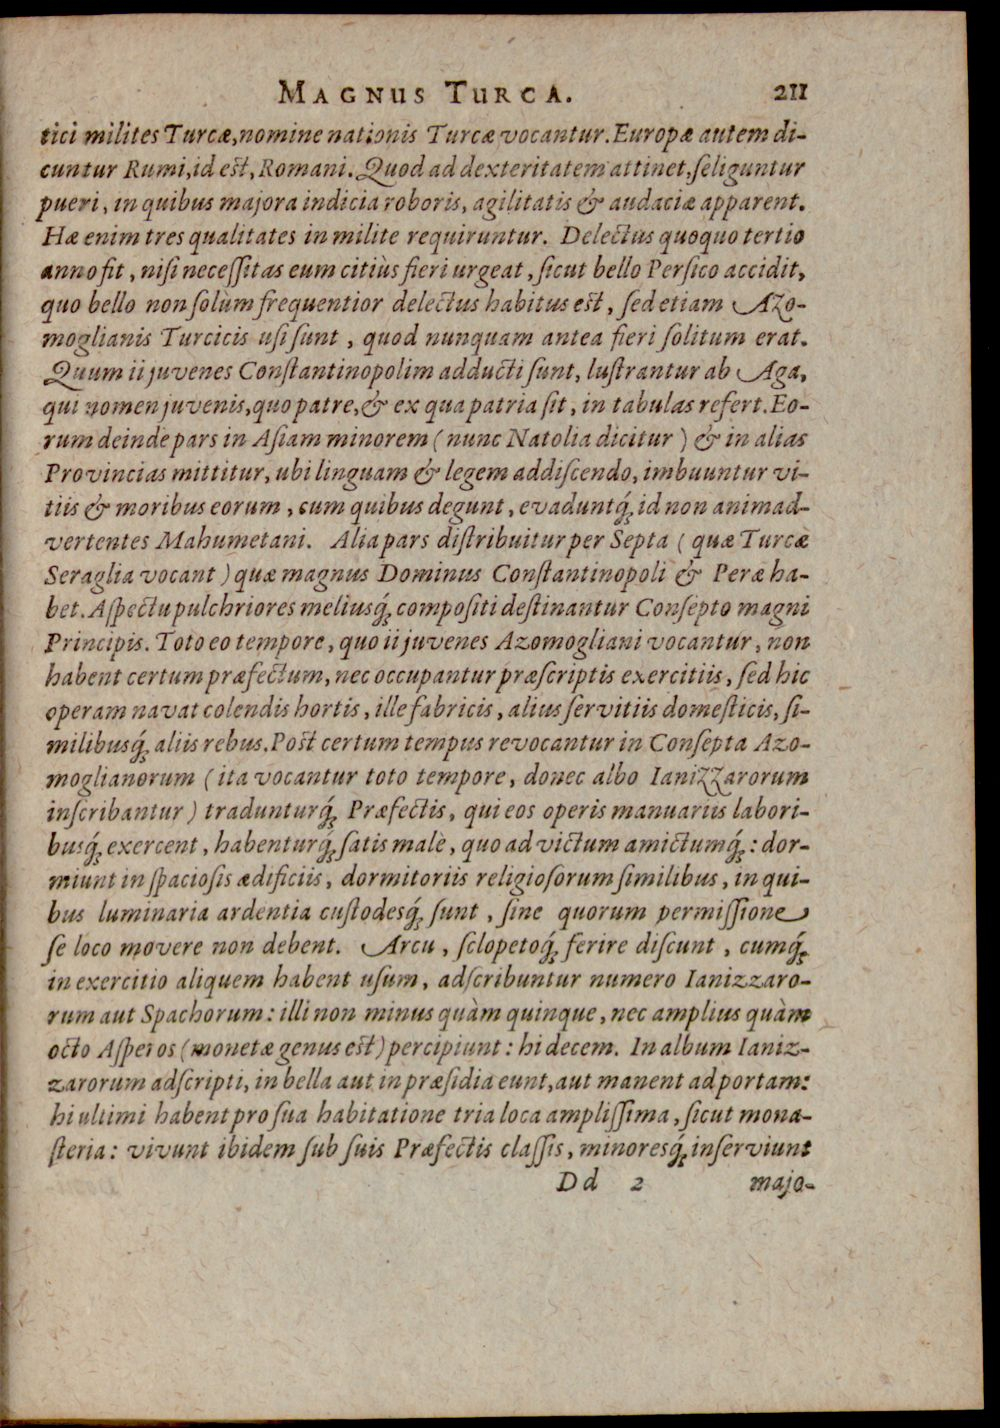 MAGNUS TURCA. 211
tici milites Turcæ, nomine nationis Turcæ vocantur. Europæ autem di-
cuntur Rumi, id est, Romani. Quod ad dexteritatem attinet, ſeliguntur
pueri, in quibus majora indicia roboris, agilitatis & audaciæ apparent.
Hæ enim tres qualitates in milite requiruntur. Delectus quoquo tertio
anno fit, niſi neceſſitas eum citiùs fieri urgeat, ſicut bello Perſico accidit,
quo bello non ſolùm frequentior delectus habitus est, ſed etiam Azo-
moglianis Turcicis uſi ſunt, quod nunquam antea fieri ſolitum erat.
Quum ii juvenes Conſtantinopolim adducti ſunt, luſtrantur ab Aga,
qui nomen juvenis, quo patre, & ex qua patria ſit, in tabulas refert. Eo-
rum deinde pars in Aſiam minorem (nunc Natolia dicitur) & in alias
Provincias mittitur, ubi linguam & legem addiſcendo, imbuuntur vi-
tiis & moribus eorum, cum quibus degunt, evaduntq́; id non animad-
vertentes Mahumetani. Alia pars diſtribuitur per Septa (quæ Turcæ
Seraglia vocant) quæ magnus Dominus Conſtantinopoli & Peræ ha-
bet. Aſpectu pulchriores meliusq́; compoſiti deſtinantur Conſepto magni
Principis. Toto eo tempore, quo ii juvenes Azomogliani vocantur, non
habent certum præfectum, nec occupantur præſcriptis exercitiis, ſed hic
operam navat colendis hortis, ille fabricis, alius ſervitiis domeſticis, ſi-
milibusq́; aliis rebus. Post certum tempus revocantur in Conſepta Azo-
moglianorum (ita vocantur toto tempore, donec albo Ianizzarorum
inſcribantur) tradunturq́; Præfectis, qui eos operis manuariis labori-
busq́; exercent, habenturq́; ſatis malè, quo ad victum amictumq́;: dor-
miunt in ſpacioſis ædificiis, dormitoriis religioſorum ſimilibus, in qui-
bus luminaria ardentia cuſtodesq́; ſunt, ſine quorum permiſſione
ſe loco movere non debent. Arcu, ſclopetoq́; ferire diſcunt, cumq́;
in exercitio aliquem habent uſum, adſcribuntur numero Ianizzaro-
rum aut Spachorum: illi non minus quàm quinque, nec amplius quàm
octo Aſperos (monetæ genus est) percipiunt: hi decem. In album Ianiz-
zarorum adſcripti, in bella aut in præſidia eunt, aut manent ad portam:
hi ultimi habent pro ſua habitatione tria loca ampliſſima, ſicut mona-
ſteria: vivunt ibidem ſub ſuis Præfectis claſſis, minoresq́; inſerviunt
Dd 2 majo-